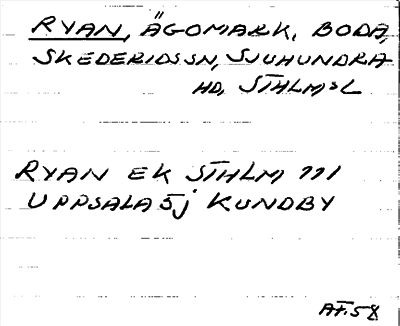 RYAN, ÄGOMARK, BODA,
SKEDERIDS SN, SJUHUNDRA
HD, STHLMS L
RYAN EK STHLM 111
UPPSALA 5j KUNDBY
AF.58